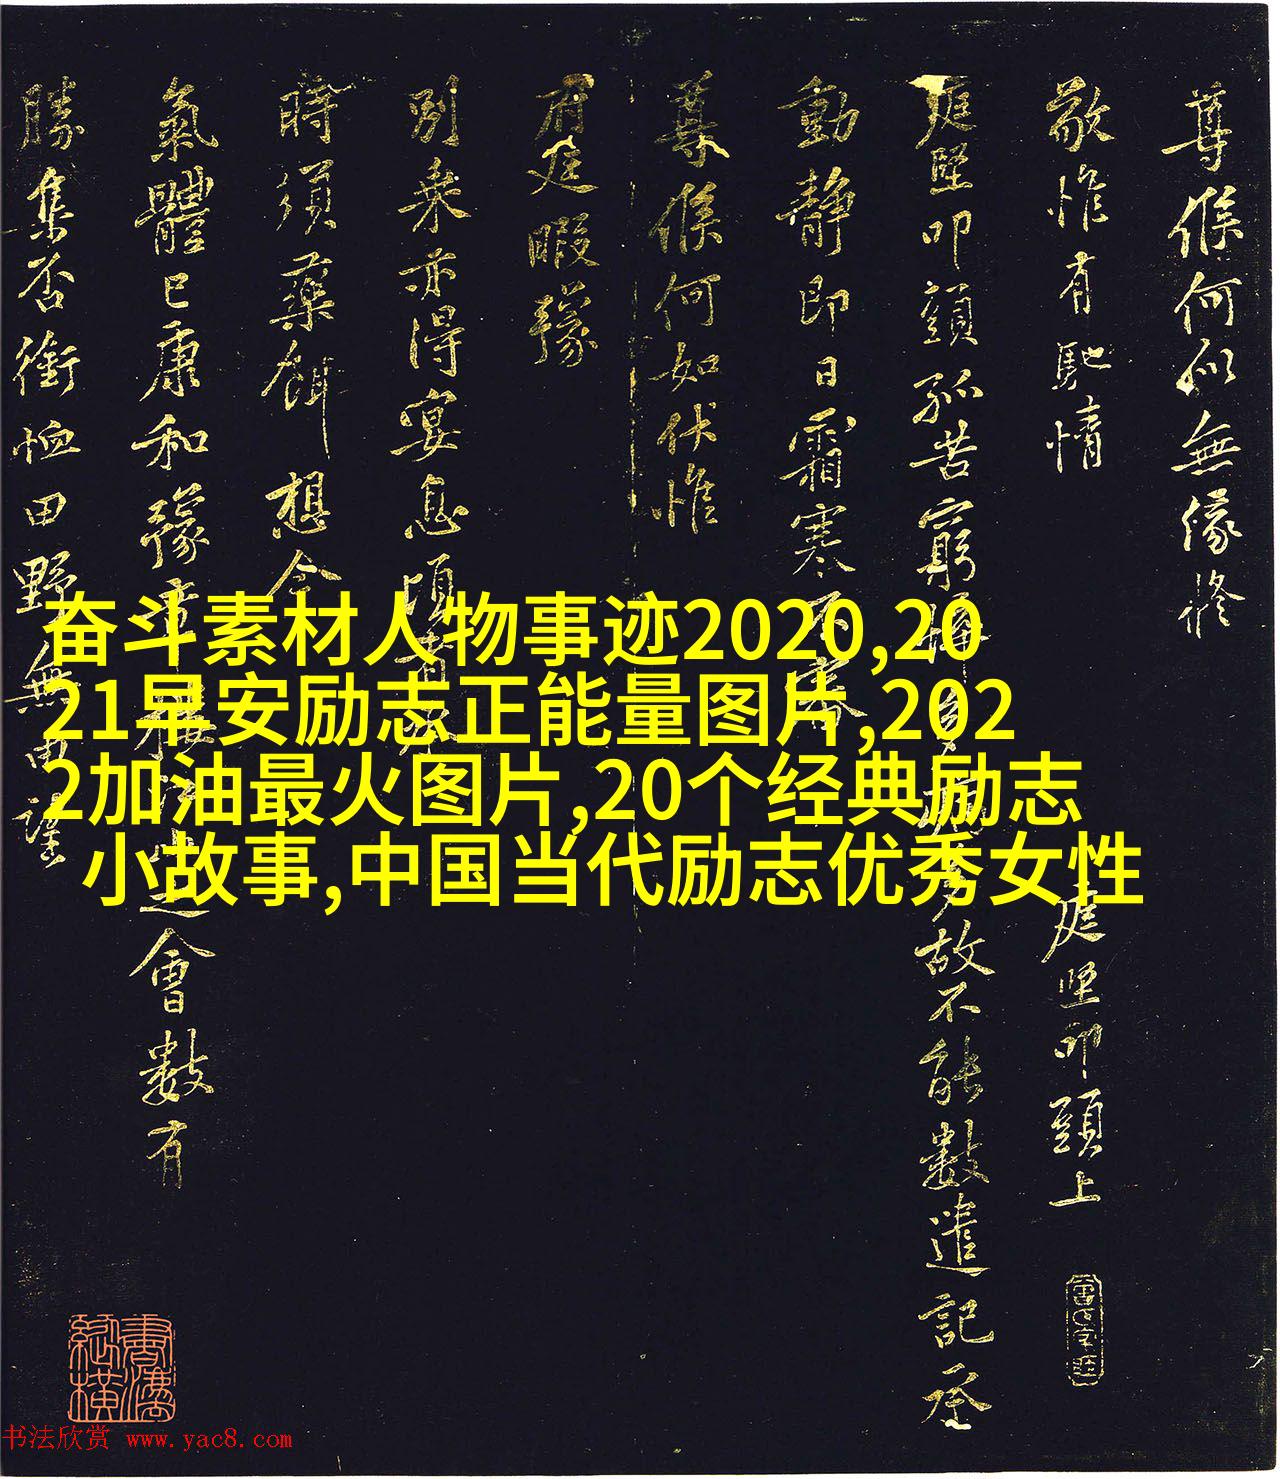 尊候何似無緣修
敬惟有馳情
庭堅叩頭上
庭堅叩頭孤苦窮
故不能數遣記承
動靜即日霜寒不審
尊候何如伏惟
府庭暇豫
別乘亦得宴息頃
時須藥餌想今
氣體已康和豫章
之會數有
勝集否銜恤田野無
奋斗素材人物事迹2020,20
21早安励志正能量图片,202
2加油最火图片,20个经典励志
小故事,中国当代励志优秀女性
書法縱橫
书法欣赏 www.yac8.com